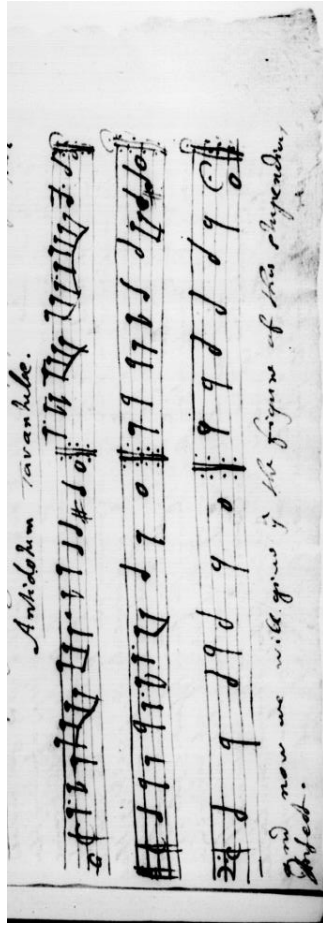 Antidotum Tarantulæ.
And now we will give yᵉ the figure of this stupendin,
Insect.